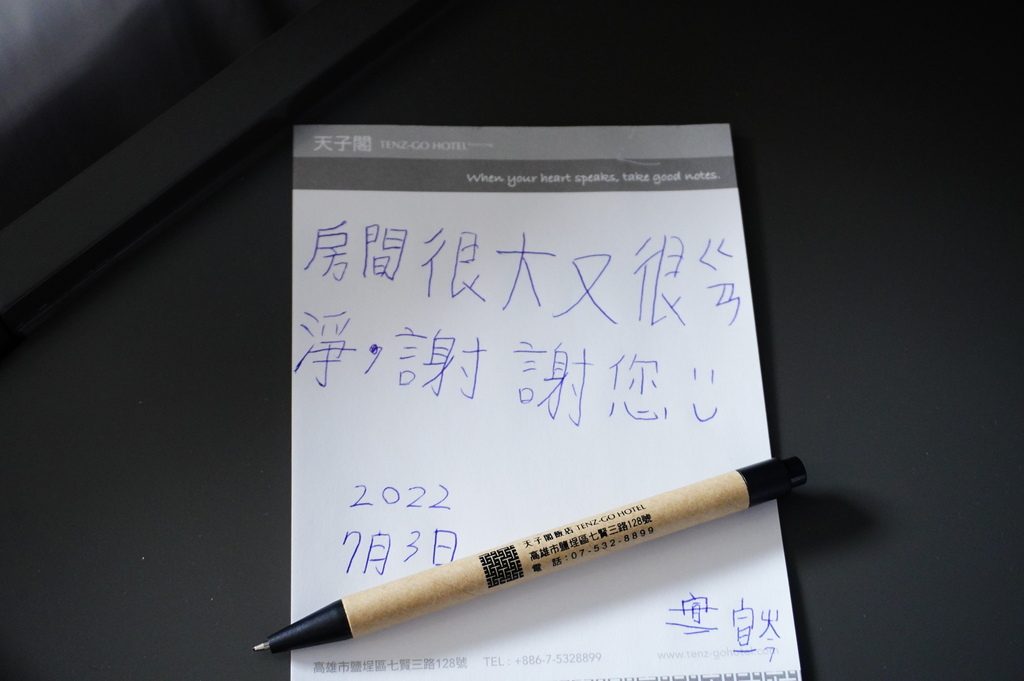 天子閣 TENZ-GO HOTEL
When your heart speaks, take good notes.
房間很大又很ㄍㄢ
淨,謝謝您
2022
7月3日
天子閣飯店 TENZ-GO HOTEL
高雄市鹽埕區七賢三路128號
電 話:07-532-8899
高雄市鹽埕區七賢三路128號 TEL : +886-7-5328899